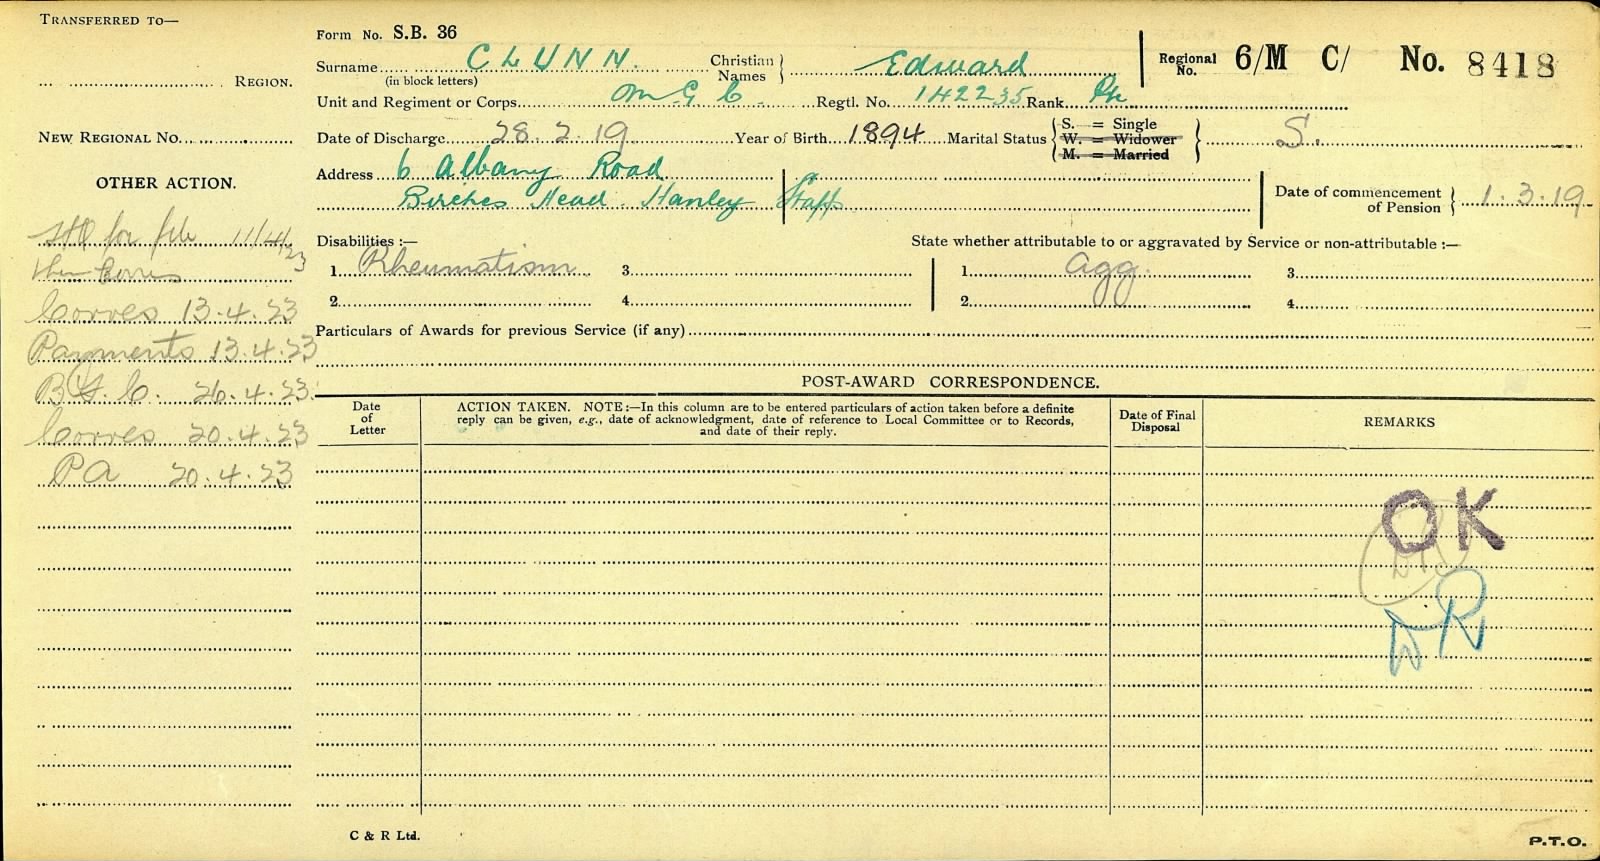 TRANSFERRED TO—
REGION.
NEW REGIONAL No.
OTHER ACTION.
for file 11/4/23
Corres
Corres 13.4.23
Payments 13.4.23
26.4.23.
Corres 20.4.23
PA 20.4.23
Form No. S.B. 36
Surname CLUNN. Christian Names } Edward Regional No. 6/M C/ No. 8418
(in block letters)
Unit and Regiment or Corps MGC. Regtl. No. 142235 Rank Pte
Date of Discharge 28.2.19 Year of Birth 1894 Marital Status { S. = Single
W. = Widower
M. = Married } S.
Address 6 Albany Road
Birches Head. Hanley Staffs
Date of commencement of Pension } 1.3.19
Disabilities :— State whether attributable to or aggravated by Service or non-attributable :—
1 Rheumatism 3 1 agg. 3
2 4 2 4
Particulars of Awards for previous Service (if any)
POST-AWARD CORRESPONDENCE.
Date of Letter
ACTION TAKEN. NOTE:—In this column are to be entered particulars of action taken before a definite
reply can be given, e.g., date of acknowledgment, date of reference to Local Committee or to Records,
and date of their reply.
Date of Final Disposal
REMARKS
OK
C & R Ltd.
P.T.O.